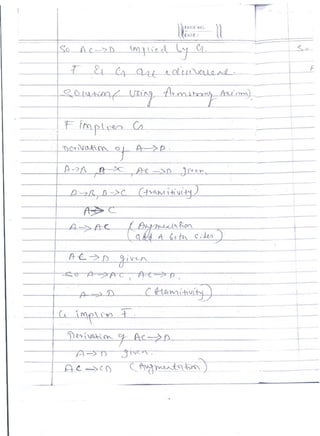 PAGE NO.
DATE:
So AC->D implied by G.
F & G are equivalent.
Solution/ Using Armstrong Axioms)
F implies G
Derivation of A->D.
A->B, B->C, AC->D given.
A->B, B->C (transitivity)
A->C
A->AC (Augmentation
add A both sides)
AC->D given
so A->AC, AC->D.
A->D (transitivity)
G implies F.
Derivation of AC->D.
A->D given.
AC->CD (Augmentation)